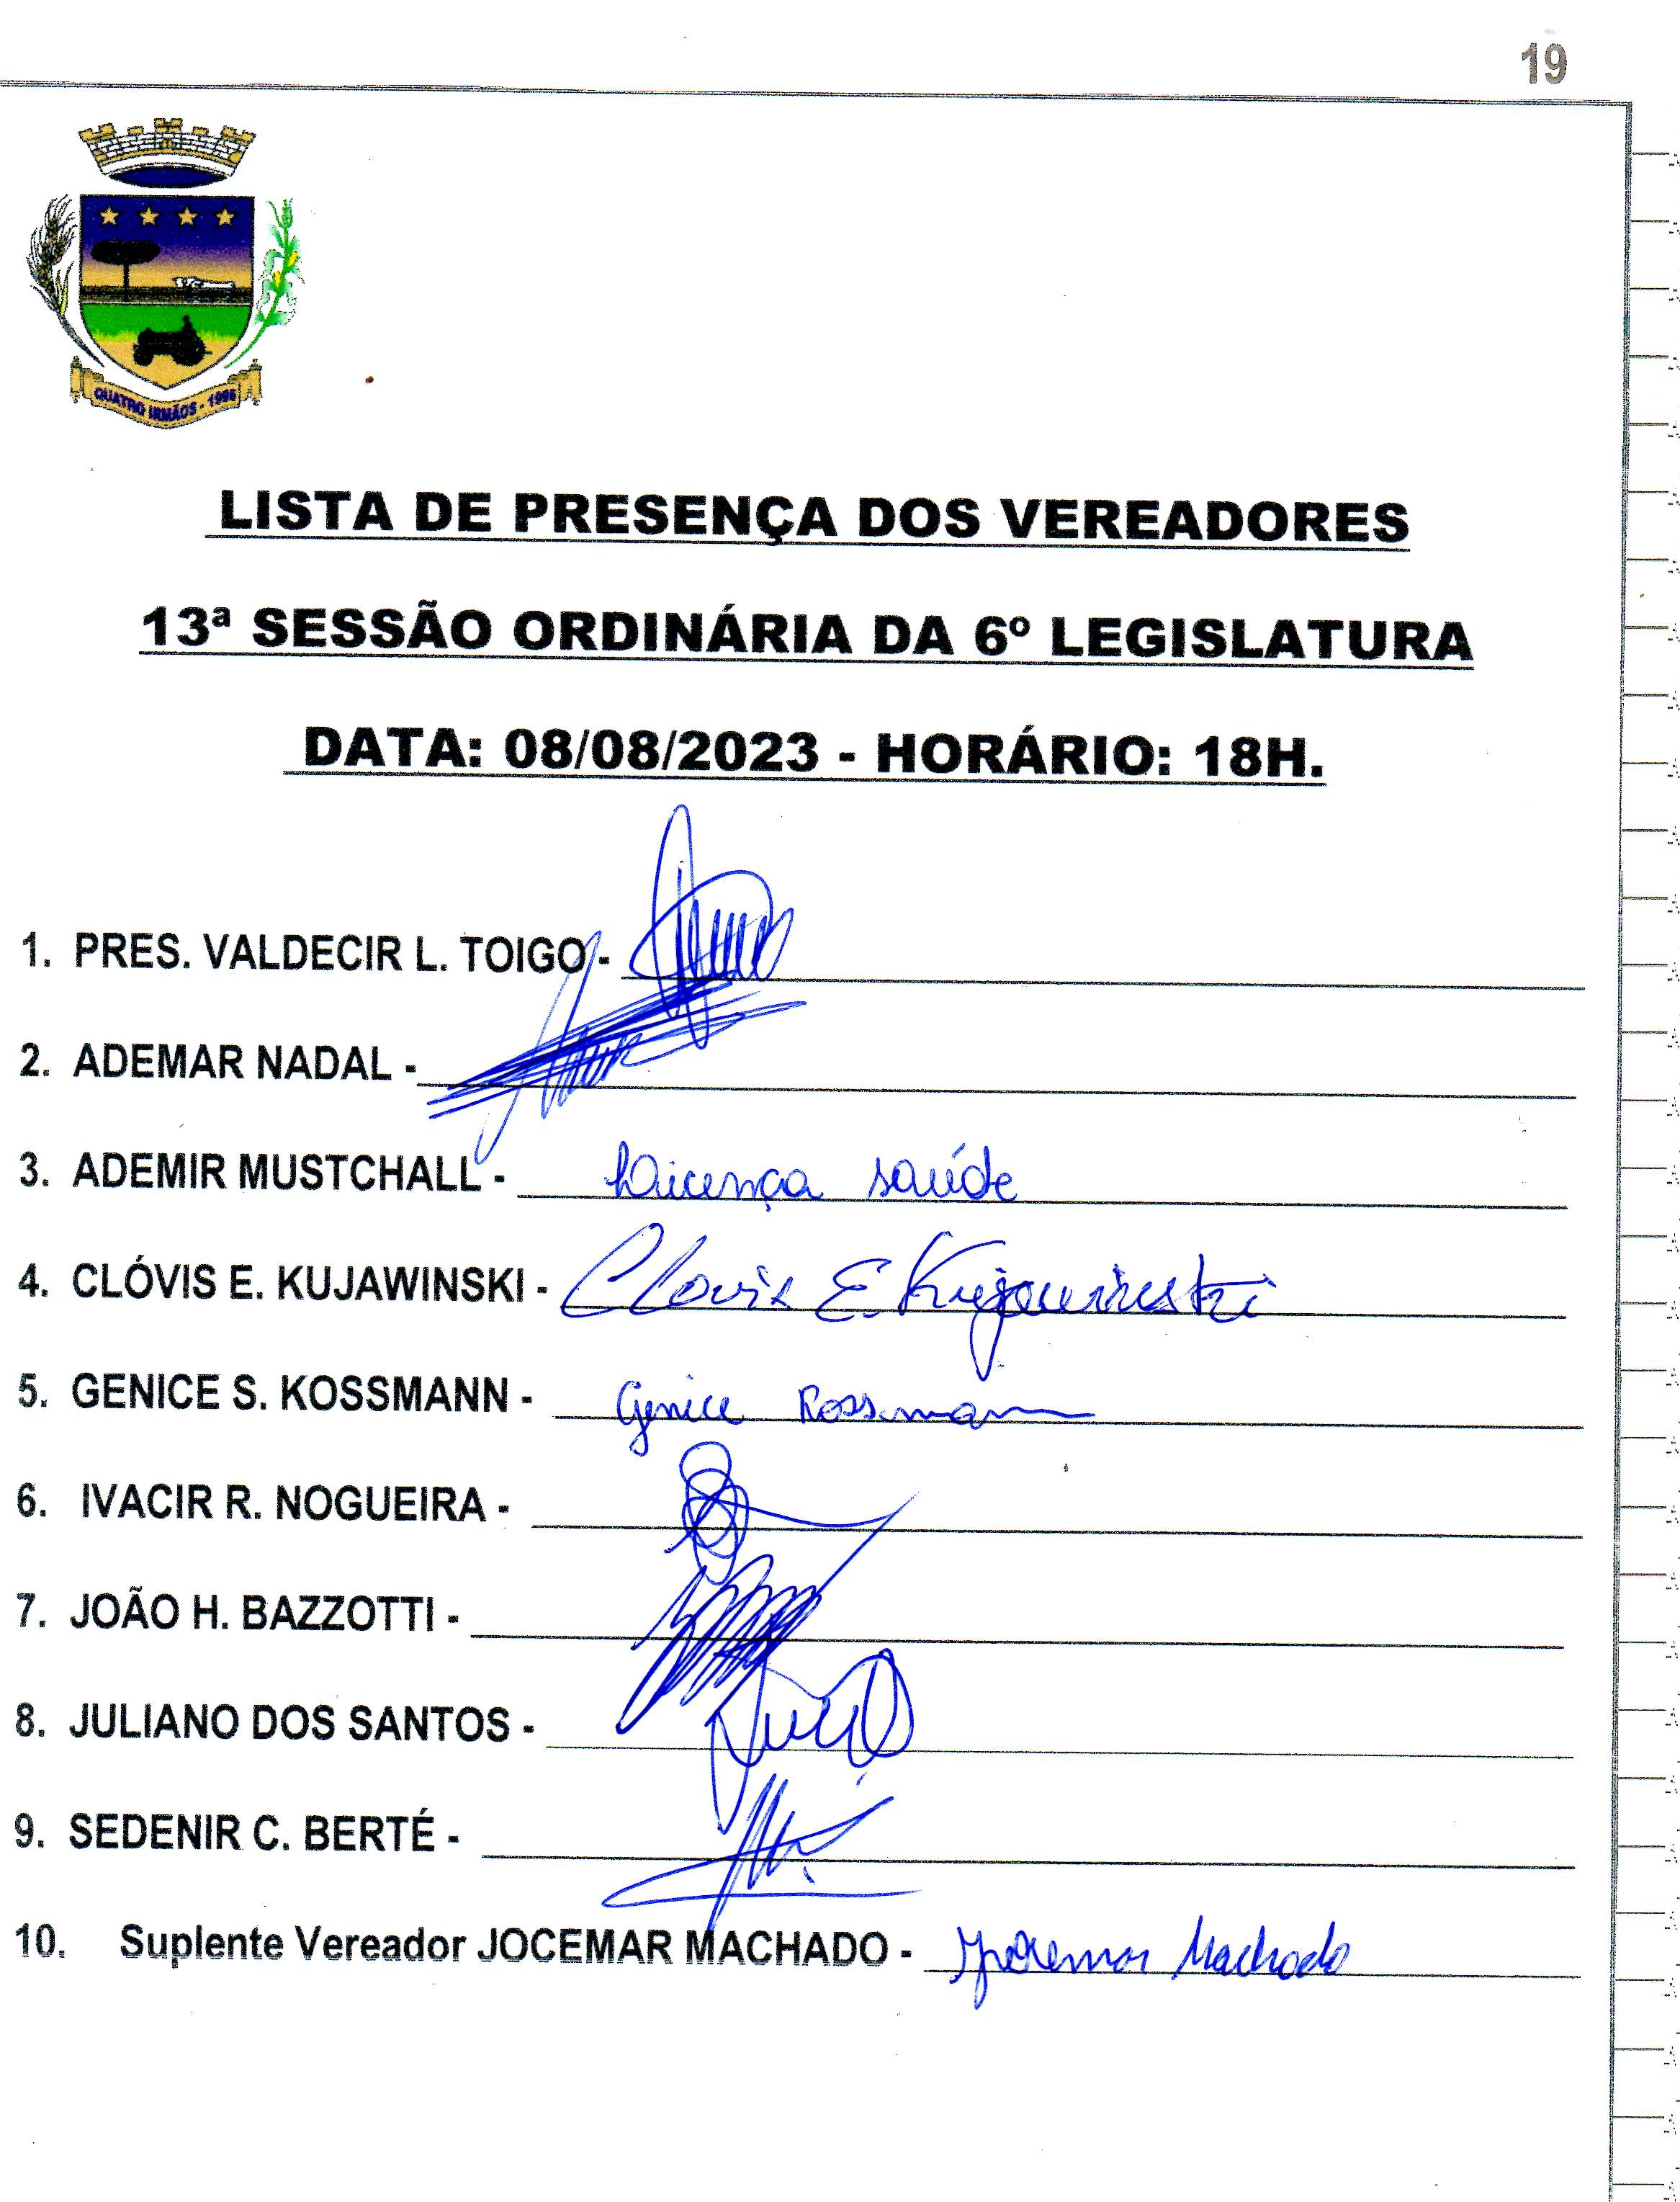 19
QUATRO IRMÃOS - 1996
LISTA DE PRESENÇA DOS VEREADORES
13ª SESSÃO ORDINÁRIA DA 6º LEGISLATURA
DATA: 08/08/2023 - HORÁRIO: 18H.
1. PRES. VALDECIR L. TOIGO -
2. ADEMAR NADAL -
3. ADEMIR MUSTCHALL - Licença saúde
4. CLÓVIS E. KUJAWINSKI - Clovis E. Kujawinski
5. GENICE S. KOSSMANN - Genice Kossmann
6. IVACIR R. NOGUEIRA -
7. JOÃO H. BAZZOTTI -
8. JULIANO DOS SANTOS -
9. SEDENIR C. BERTÉ -
10. Suplente Vereador JOCEMAR MACHADO - Jocemar Machado